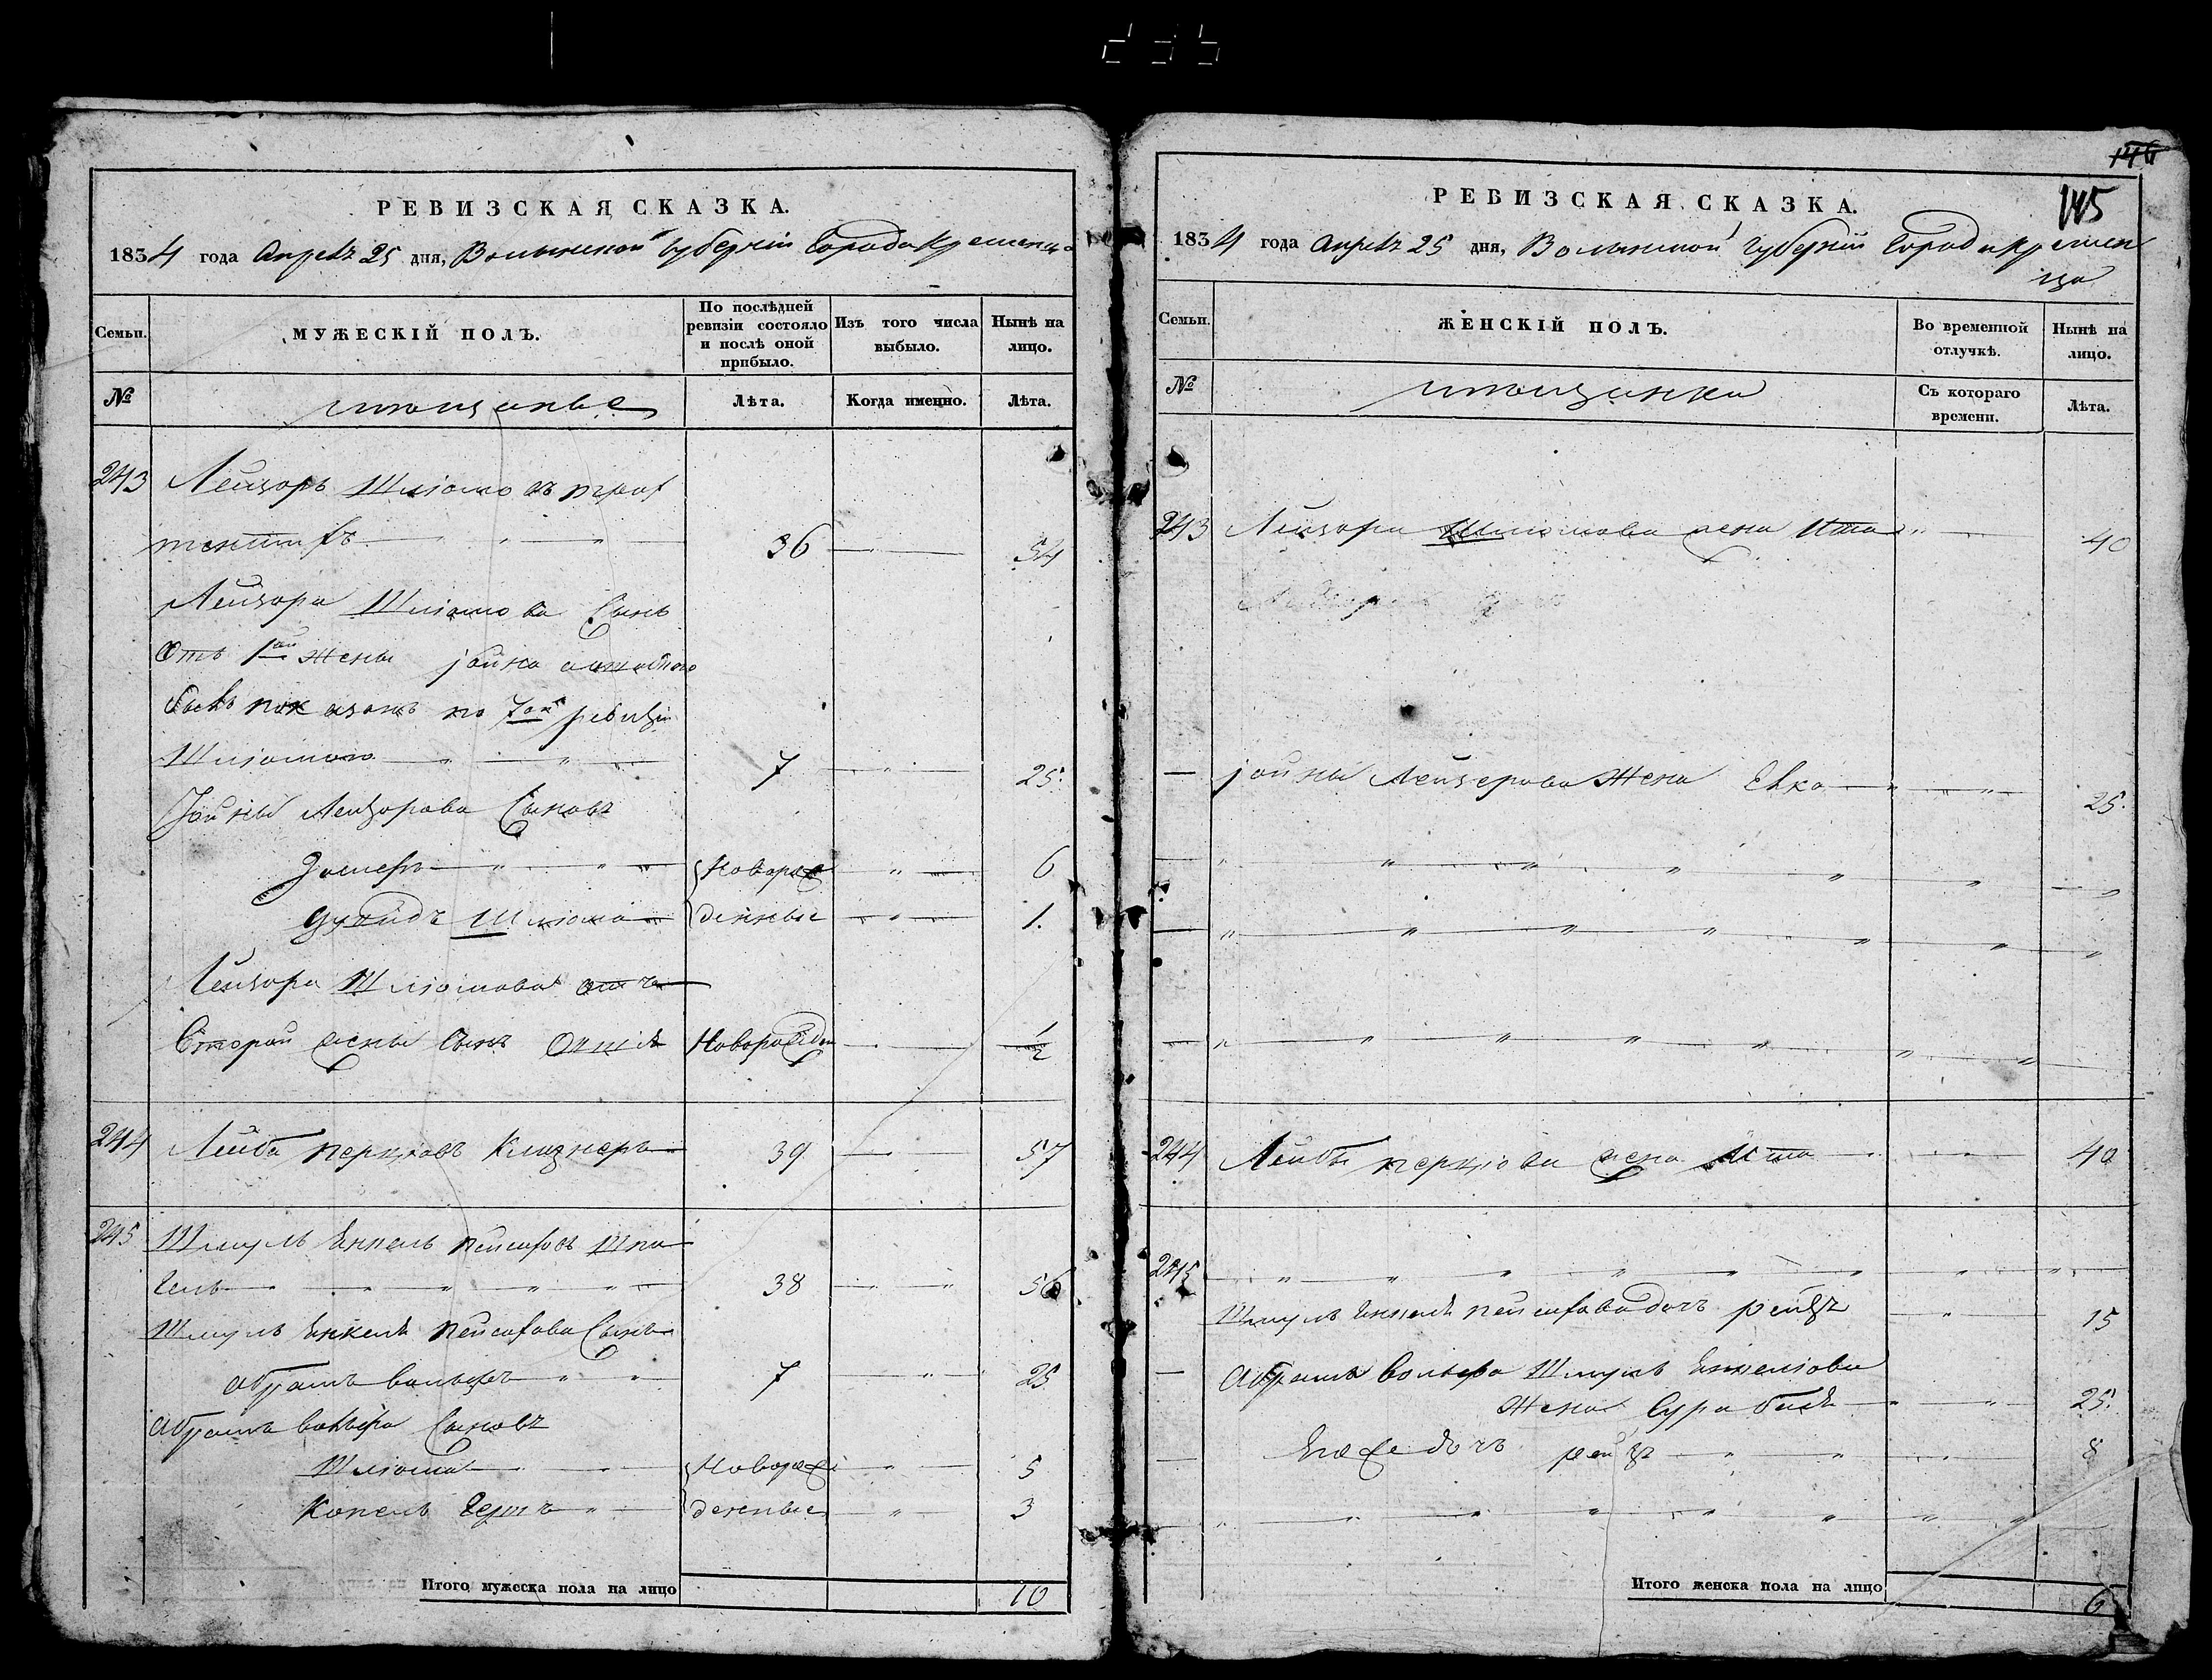 РЕВИЗСКАЯ СКАЗКА.
1834 года Апреля 25 дня, Волынской Губернии Города Кременца
Семьи.
МУЖЕСКІЙ ПОЛЪ.
По послѣдней ревизіи состояло и послѣ оной прибыло.
Изъ того числа выбыло.
Нынѣ на лицо.
№
мѣщанье
Лѣта.
Когда именно.
Лѣта.
243 Лейзоръ Шліомовъ
36 54
Лейзора Шліомова Сынъ
Отъ 1ой жены Іойна
былъ показанъ по 7ой ревизіи
Шліомою 7 25
Іойны Лейзорова Сыновъ
Новорож 6
Шліома денные 1.
Лейзора Шліомова отъ
Второй жены Сынъ Новорожден 1/2
244 Лейба Перцовъ Клизнеръ 39 57
245 Шмуль Янкель Пейсаховъ Шпи
гель 38 56
Шмуль Янкеля Пейсахова Сынъ
Абрамъ Вольфъ 7 25
Абрамъ Вольфа Сыновъ
Шліома Новорож 5
Копель Гершъ денные 3
Итого мужеска пола на лицо 10
146
145
РЕВИЗСКАЯ СКАЗКА.
1834 года Апреля 25 дня, Волынской Губерніи Города Кремен
ца
Семьи.
ЖЕНСКІЙ ПОЛЪ.
Во временной отлучкѣ.
Нынѣ на лицо.
№
мѣщанки
Съ котораго времени.
Лѣта.
243 Лейзора Шліомова жена Ита 40
Іойны Лейзерова Жена Елка 25.
244 Лейбы Перцова жена 40
245
Шмуль Янкеля Пейсахова дочь Рейзя 15
Абрамъ Вольфа Шмуль Янкеліова
Жена Сура Бася 25.
Егоже дочь Рейзя 8
Итого женска пола на лицо 6